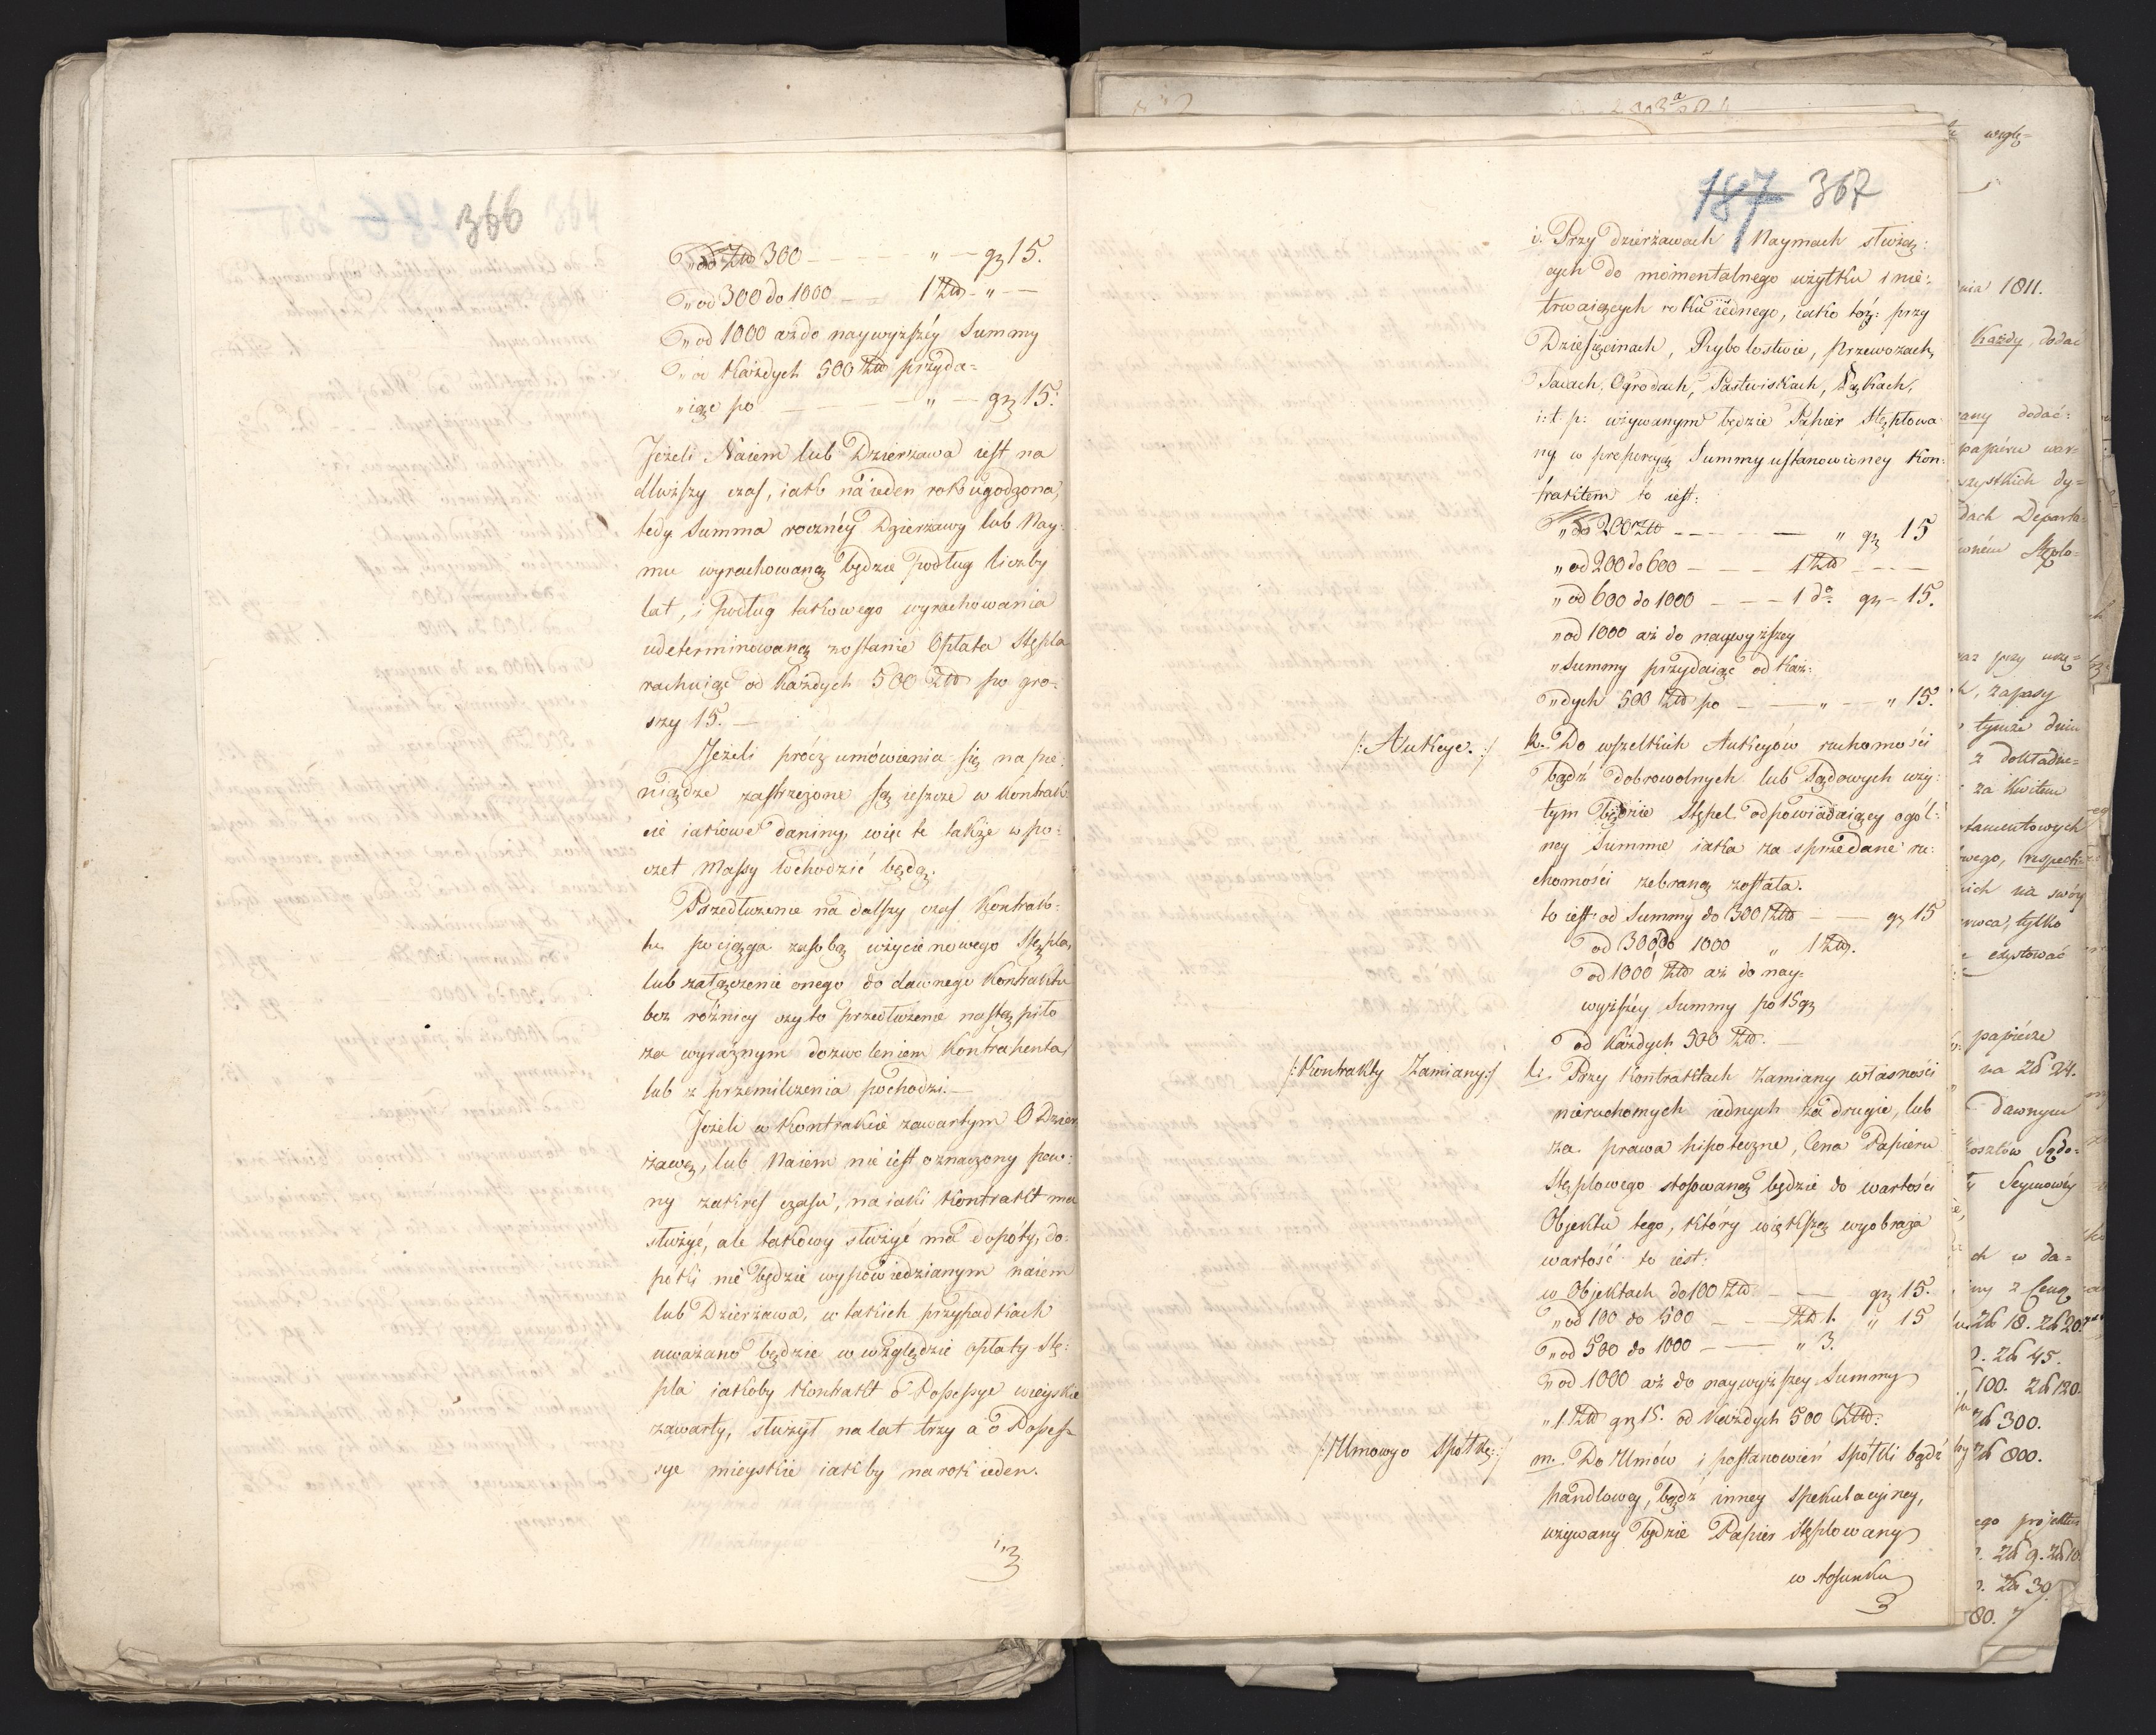 366
„do Złł 300 – – – – – „ – gr 15.
„od 300 do 1000 – – 1 Złł – „ –
„od 1000 aż do naywyższéy Summy
„od Każdych 500 Złł przyda=
„iąc po – – – – „ – gr 15.
Jeżeli Naiem lub Dzierzawa iest na
dłuższy czas, iak na ieden rok ugodzona,
tedy Summa rocznéy Dzierżawy lub Nay:
mu wyrachowaną będzie podług liczby
lat, i podług takowego wyrachowania
udeterminowaną zostanie Opłata Stępla
rachuiąc od Każdych 500 Złł po gro=
szy 15. –
Jeżeli prócz umówienia się na pie:
niądze zastrzeżone są ieszcze w Kontrak:
cie iakowe daniny, więc te także w po:
czet Massy wchodzić będą.
Przedłużenie na dalszy czas Kontrak=
tu pociąga za sobą użycie nowego Stępla,
lub załączenie onego do dawnego Kontraktu
bez różnicy czyto przedłużenie nastąpiło
za wyraźnym dozwoleniem Kontrahenta,
lub z przemilczenia pochodzi. –
Jeżeli w Kontrakcie zawartym O Dzier
żawę, lub Naiem nie iest oznaczony pew:
ny zakres czasu, na iaki Kontrakt ma
służyć, ale takowy służyć ma dopóty, do:
póki nie będzie wypowiedzianym naiem
lub Dzierżawa, w takich przypadkach
uważano będzie w względzie opłaty Stę:
pla iakoby Kontrakt o Possessye wieyskie
zawarty, służył na lat trzy a o Posses=
sye mieyskie iakby na rok ieden.
187 367
i. Przy Dzierżawach i Naymach służą:
cych do momentalnego użytku i nie:
trwaiących roku iednego, iako też: przy
Dziesięcinach, Rybołostwie, Przewozach,
Sadach, Ogrodach, Pastwiskach, Łąkach,
i: t: p: używanym będzie Papier Stęplowa
ny w proporcyą Summy ustanowioney Kon:
traktem to iest:
„do 200 Złł – – – – „ gr 15
„od 200 do 600 – – – 1 Złł – – –
„od 600 do 1000 – – – 1 do gr – 15.
„od 1000 aż do naywyższey
„Summy przydaiąc od Kaz:
„dych 500 Złł po – – „ – „ 15.
/: Aukcye. :/
k. Do wszelkich Aukcyów ruchomości
bądź dobrowolnych lub Sądowych uży:
tym będzie Stępel odpowiadaiący ogól:
ney Summie iaka za sprzedane ru:
chomości zebraną została.
to iest: od Summy do 300 Złł – – gr 15
od 300 do 1000 „ 1 Złł.
od 1000 Złł aż do nay=
wyższéy Summy po 15 gr
od Każdych 500 Złł. –
/: Kontrakty Zamiany :/
l. Przy Kontraktach Zamiany własności
nieruchomych iednych za drugie, lub
za prawa hipoteczne, Cena Papieru
Stęplowego stosowaną będzie do wartości
Objektu tego, który większą wyobraża
wartość to iest:
w Objektach do 100 Złł – – gr 15.
„od 100 do 500 – – Złł 1. „ 15
„od 500 do 1000 – – „ 3.
„od 1000 aż do naywyższey Summy
„1 Złł gr 15. od Każdych 500 Złł.
/: Umowy o Spółkę :/
m. Do Umów i postanowień Spółki bądź
handlowey, bądź inney Spekulacyiney,
używany będzie Papier Stęplowany
w stosunku
wzglę=
1811.
Każdy, dodać
dodać:
papiéru war=
dy=
Departa=
Stęplo=
zapasy
tymże dniu
z dokładne=
za Kwitem
respecti=
na swóy
tylko
exystować
papiérze
na Zł 24.
dawnym
Kosztów Sądo=
Seymowéy
w da=
z Ceną
Zł 18. Zł 20.
Zł 45.
100. Zł 120.
Zł 300.
Zł 800.
projektu
Zł 9. Zł 10.
Zł 30.
80.